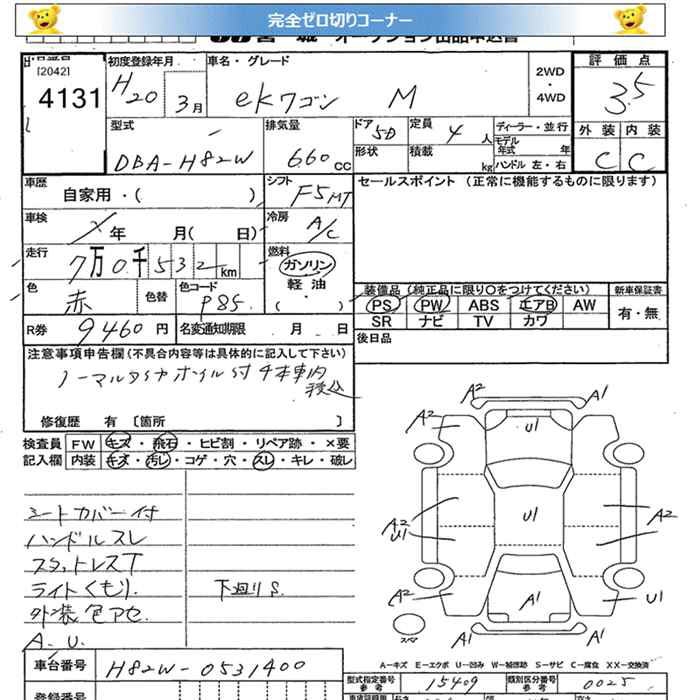 完全ゼロ切りコーナー
宮城 オークション出品申込書
出品番号 [2042] 4131
初度登録年月 H20 3月
車名・グレード ekワゴン M
2WD ・ 4WD
評価点 3.5
外装 内装
C C
型式 DBA-H82W
排気量 660 CC
ドア 5D 定員 4 人
形状 積載 kg
ディーラー・並行
モデル年式 年
ハンドル 左・右
車歴 自家用・( )
シフト F5 MT
セールスポイント (正常に機能するものに限ります)
車検 年 月( 日)
冷房 A/C
走行 7万0千532km
燃料 ガソリン 軽油 ( )
色 赤 色替 色コード P85
装備品 (純正品に限り○をつけてください)
新車保証書 有・無
PS PW ABS エアB AW
SR ナビ TV カワ
R券 9460 円 名変通知期限 月 日
後日品
注意事項申告欄 (不具合内容等は具体的に記入して下さい)
ノーマルタイヤホイル付 4本車内積込
修復歴 有 〔箇所 〕
検査員 FW キズ・飛石・ヒビ割・リペア跡・×要
記入欄 内装 キズ・汚レ・コゲ・穴・スレ・キレ・破レ
シートカバー付
ハンドルスレ
スタットレスT
ライトくもり
下廻りS
外装色アセ
A.U.
A2 A1
A2 U1 A1
A2 U1 U1 A2
A2 A1 U1
A1 A1
スペア
A-キズ E-エクボ U-凹み W-補修跡 S-サビ C-腐食 XX-交換済
車台番号 H82W-0531400
型式指定番号 参考 15409
類別区分番号 参考 0025
登録番号